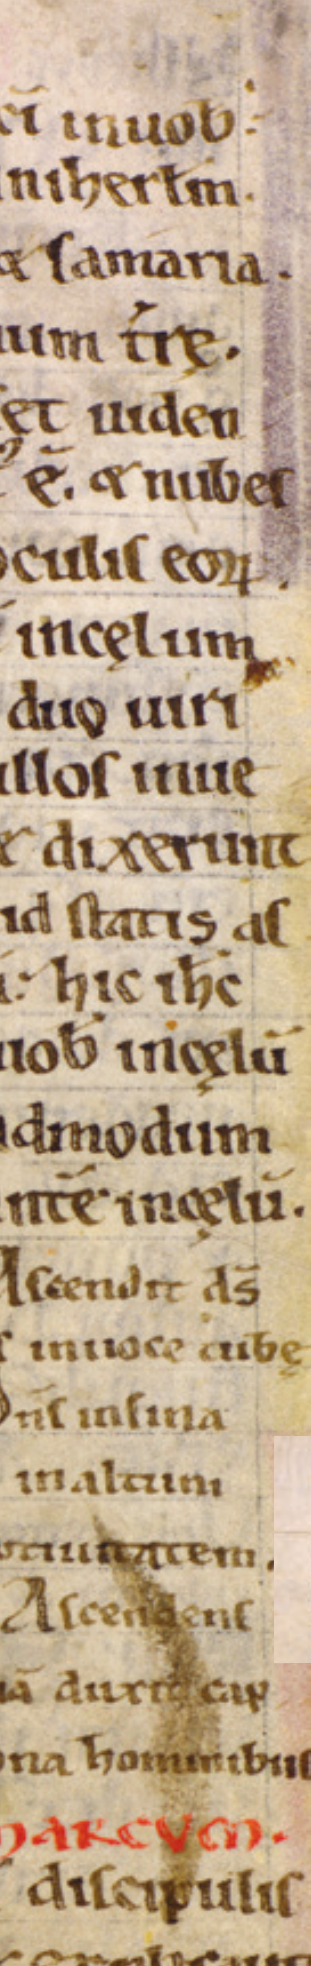 ci inuob:
inihertm.
& samaria.
uum tr̄ę.
et uiden
ē. & nubes
oculis eoꝝ.
incęlum
duo uiri
illos iuue
& dixerunt
id statis as
hic ih̄c
uob incęlū
admodum
ntē incęlū.
Ascendit ds̄
in uoce tubę
Dn̄s insina
in altum
ptiuitatem.
Ascendens
nā duxit cap
ona hominibus
MARCVM.
discipulis